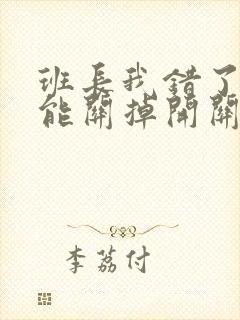 班长我错了
能關掉開關
李荔付